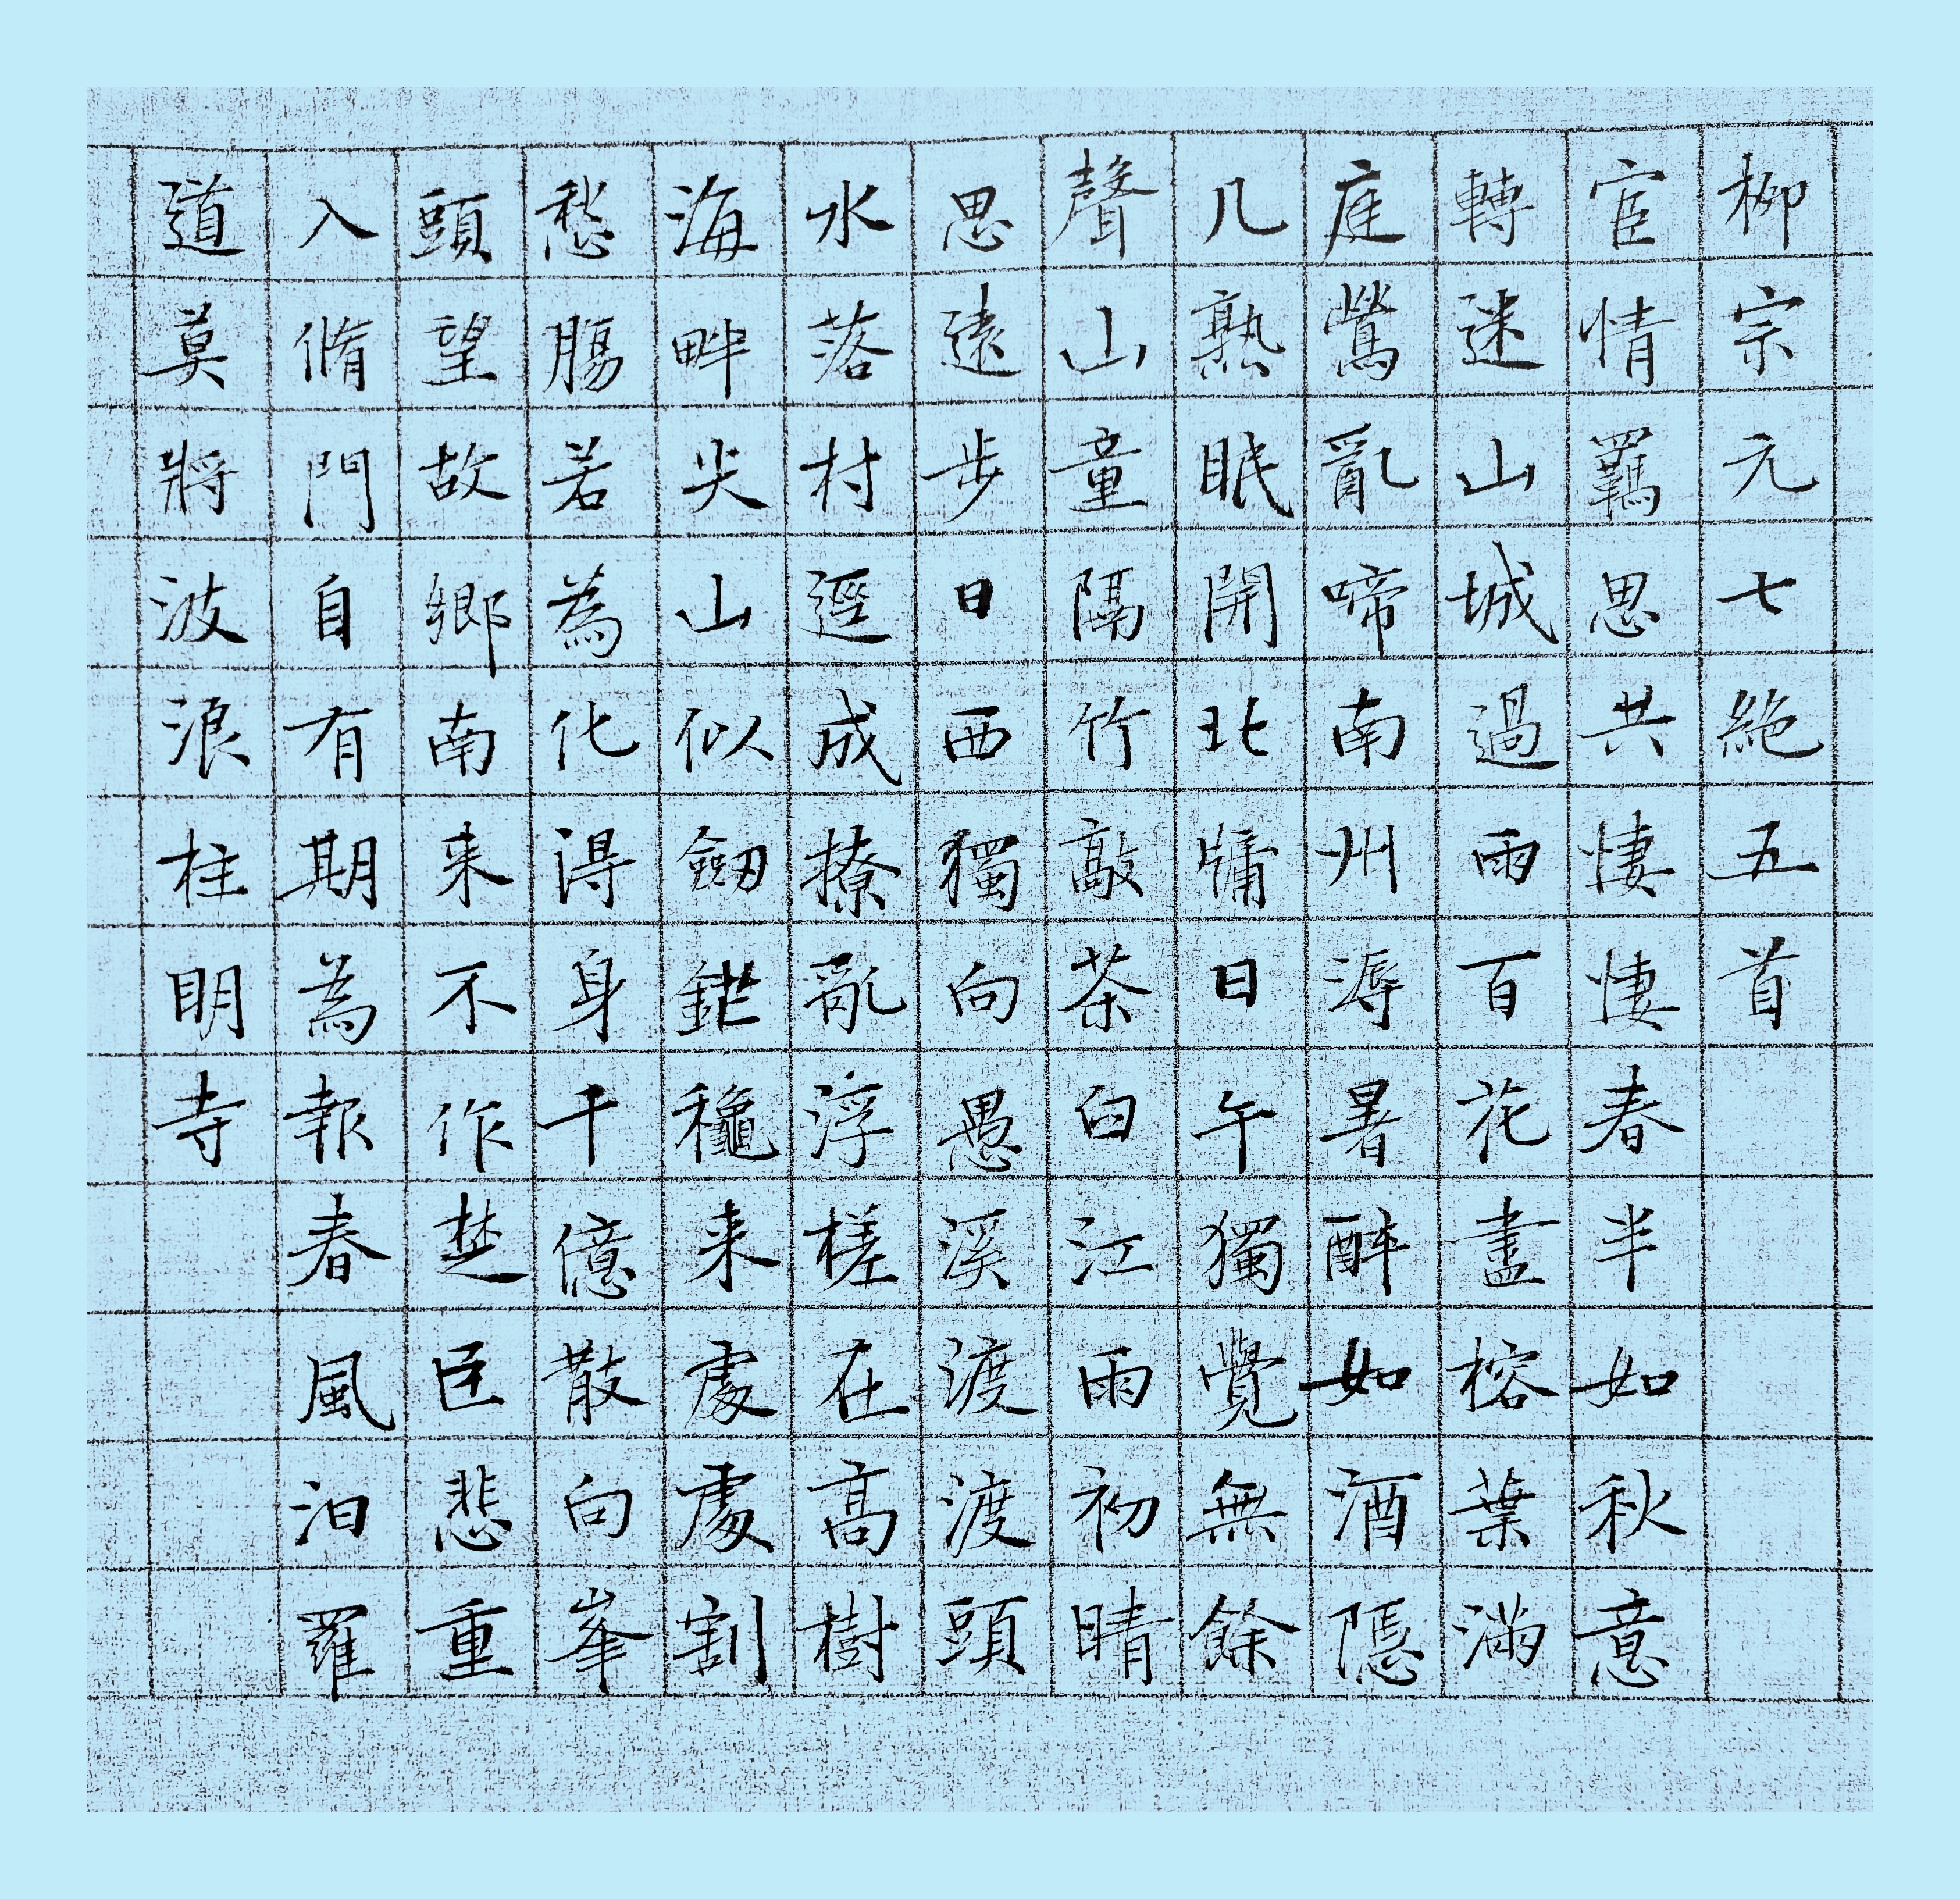 柳宗元七絶五首
宦情羈思共悽悽春半如秋意
轉迷山城過雨百花盡榕葉滿
庭鶯亂啼南州溽暑醉如酒隱
几熟眠開北牖日午獨覺無餘
聲山童隔竹敲茶臼江雨初晴
思遠步日西獨向愚溪渡渡頭
水落村逕成撩亂浮槎在高樹
海畔尖山似劒鋩龝来處處割
愁腸若為化得身千億散向峯
頭望故鄉南来不作楚臣悲重
入脩門自有期為報春風汨羅
道莫將波浪柱眀寺